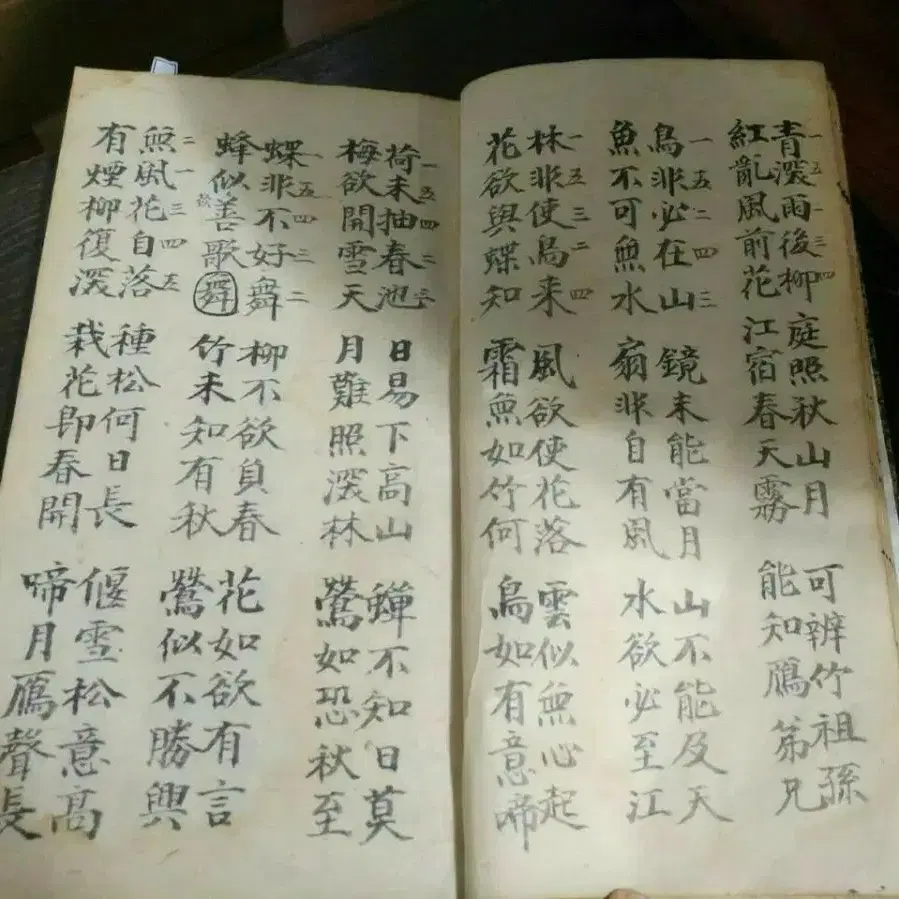 青深雨後柳
一五一三四
紅亂風前花
庭照秋山月
江宿春天霧
可辨竹祖孫
能知鴈弟兄
鳥非必在山
一五二四三
魚不可無水
鏡未能當月
扇非自有風
山不能及天
水欲必至江
林非使鳥来
一五三二四
花欲與蝶知
風欲使花落
霜無如竹何
雲似無心起
鳥如有意啼
荷未抽春池
一五四二三
梅欲開雪天
日易下高山
月難照深林
蟬不知日莫
鶯如恐秋至
蝶非不好舞
一五四三二
蜂似善歌舞
柳不欲負春
竹未知有秋
花如欲有言
鶯似不勝興
無風花自落
二一三四五
有煙柳復深
種松何日長
栽花即春開
偃雪松意高
啼月鴈聲長